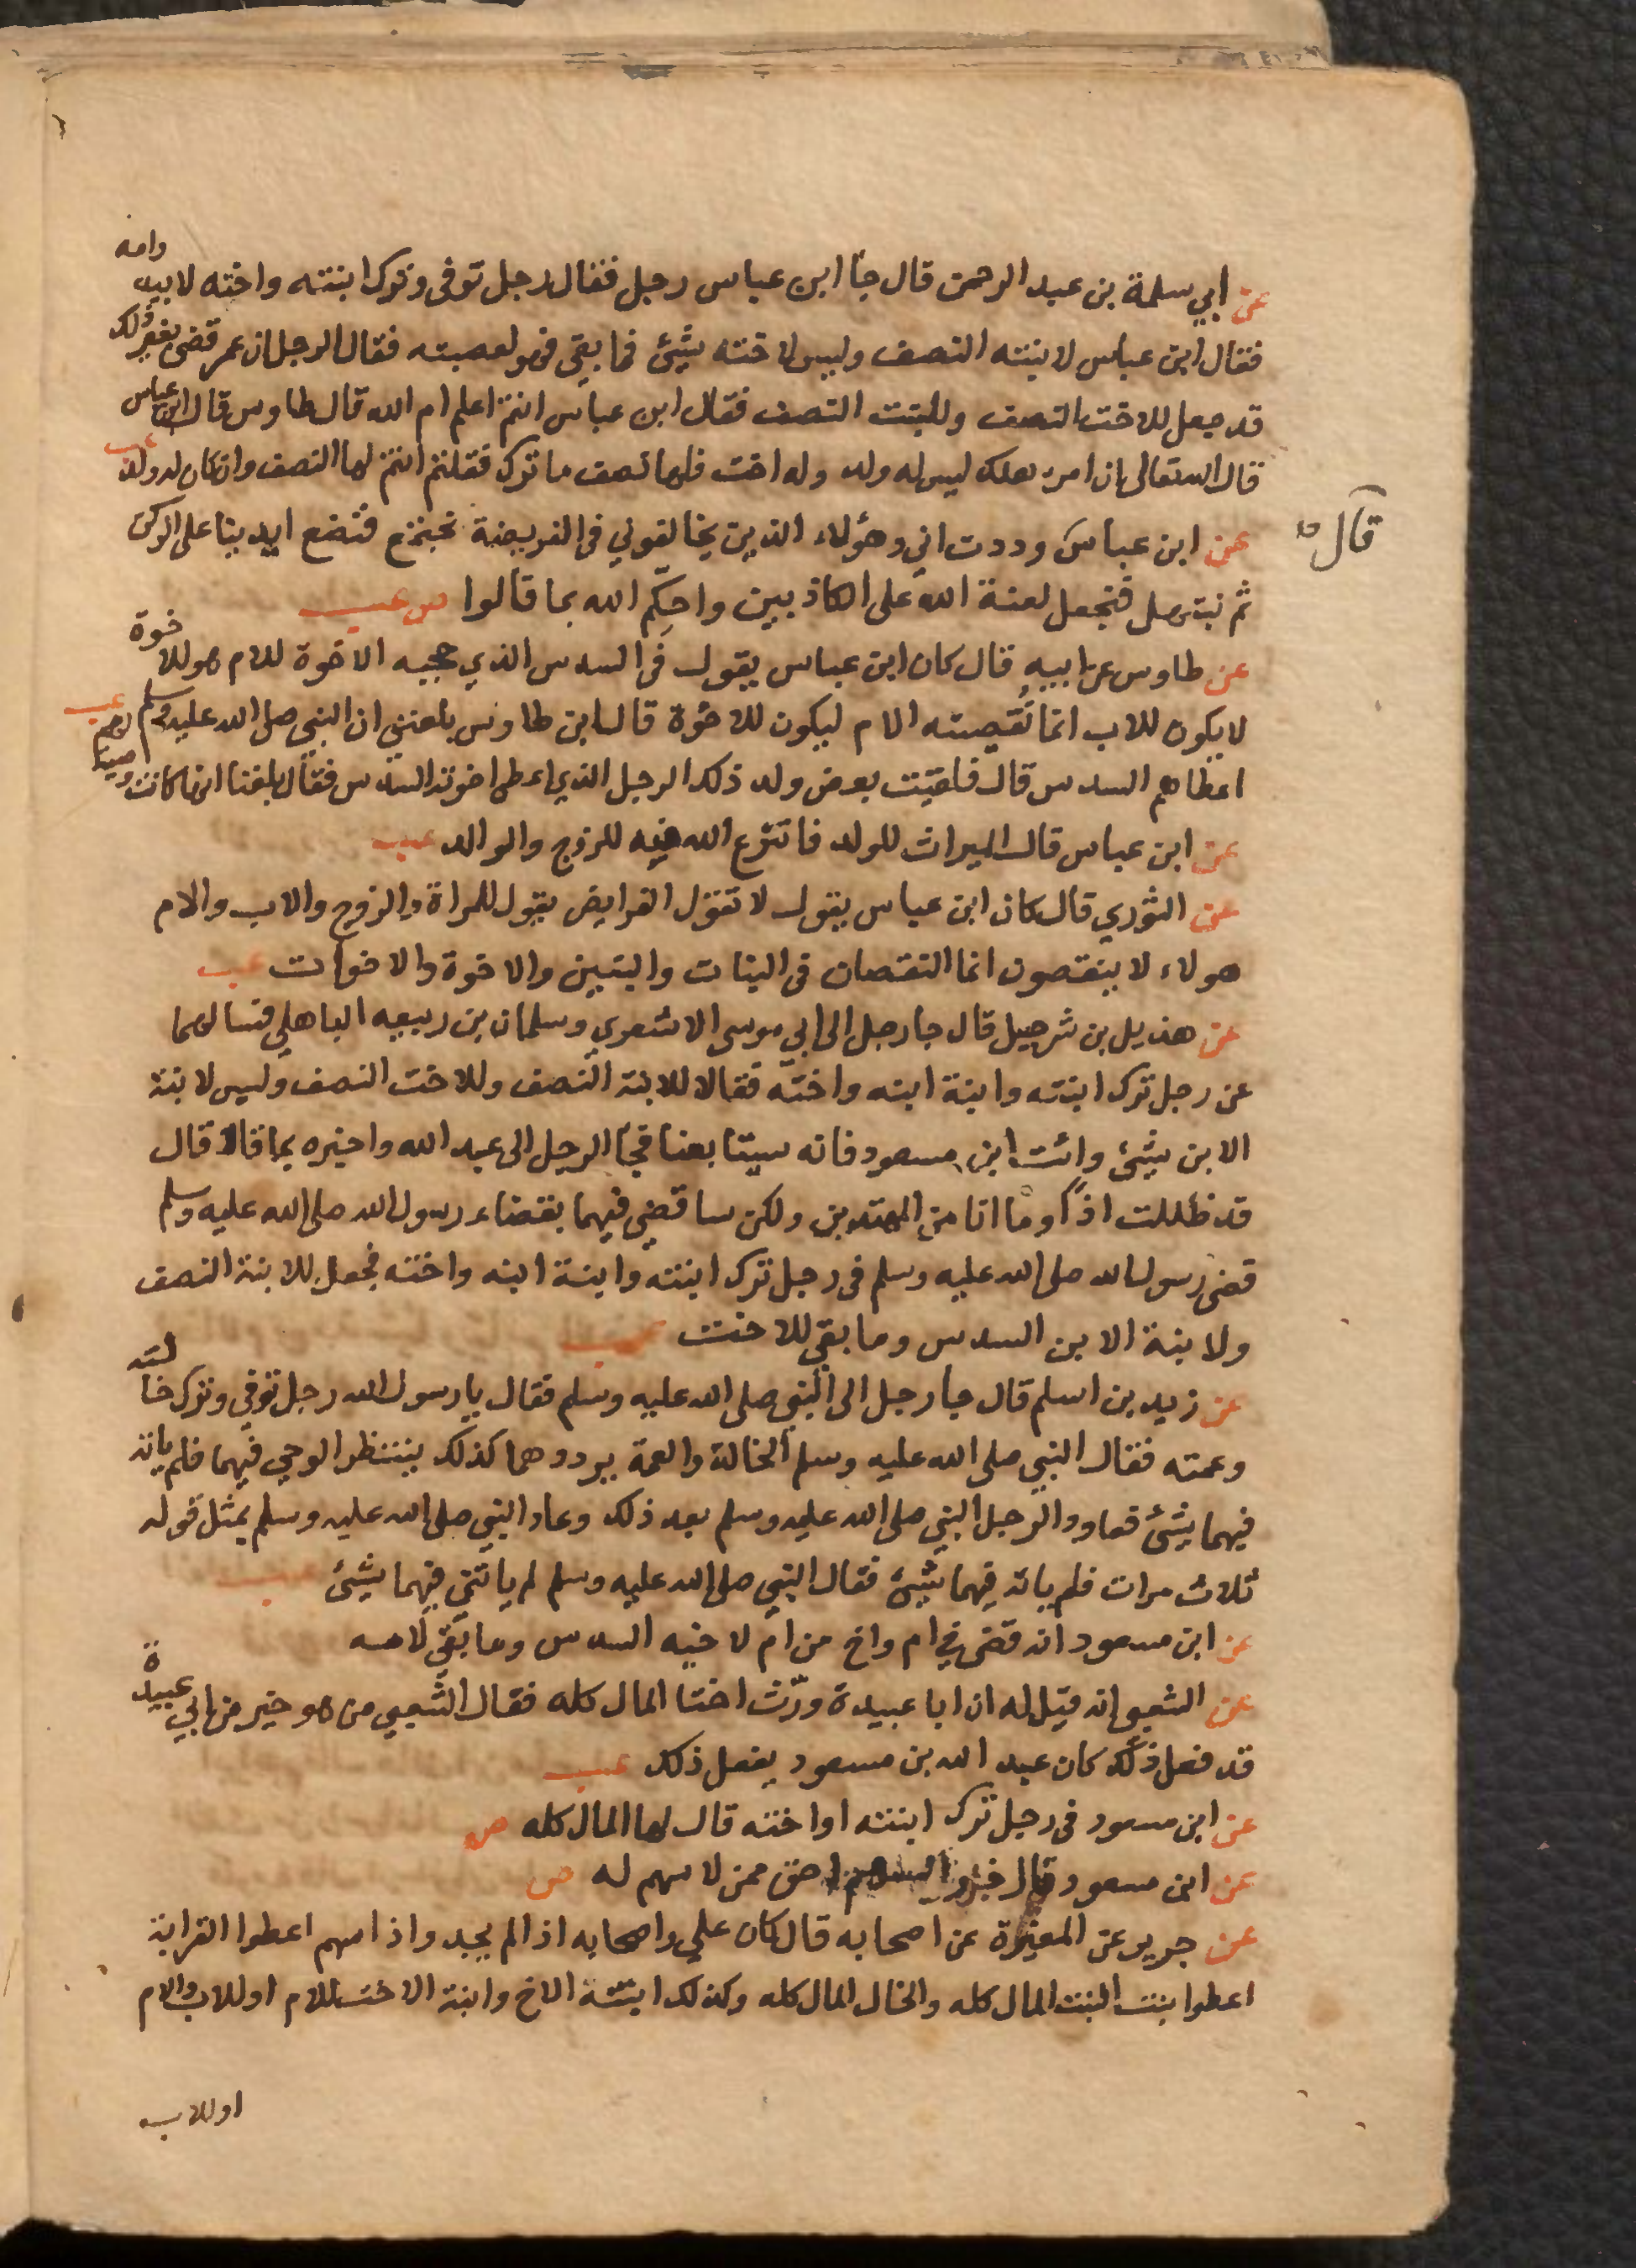 عن ابي سلمة بن عبد الرحمن قال جا ابن عباس رجل فقال رجل توفى وترك ابنته واخته لابيه وامه
فقال ابن عباس لابنته النصف وليس لاخته شئ فما بقى فهو لعصبته فقال الرجل ان عمر قضى بغير ذلك
قد جعل للاخت النصف وللبنت النصف فقال ابن عباس انتم اعلم ام الله قال طاوس قال ابن عباس
قال الله تعالى ان امرء هلك ليس له ولد وله اخت فلها نصف ما ترك فقلتم انتم لها النصف وان كان له ولد عب
عن ابن عباس وددت اني وهؤلاء الذين يخالفوني في الفريضة نجتمع فنضع ايدينا على الركن
قال
ثم نبتهل فنجعل لعنة الله على الكاذبين واحكم الله بما قالوا ص عب
عن طاوس عن ابيه قال كان ابن عباس يقول في السدس الذي حجبه الاخوة للام هو للاخوة
لا يكون للاب انما نقصته الام ليكون للاخوة قال ابن طاوس بلغني ان النبي صلى الله عليه وسلم
اعطاهم السدس قال فلقيت بعض ولد ذلك الرجل الذي اعطى اخوته السدس فقال بلغنا انها كانت وصية لهم عب
عن ابن عباس قال الميراث للولد فانتزع الله منه للزوج والوالد عب
عن الثوري قال كان ابن عباس يقول لا تعول الفرايض يقول للمراة والزوج والاب والام
هولاء لا ينقصون انما النقصان في البنات والبنين والاخوة والاخوات عب
عن هذيل بن شرحبيل قال جا رجل الى ابي موسى الاشعري وسلمان بن ربيعه الباهلي فسالهما
عن رجل ترك ابنته وابنة ابنه واخته فقالا للابنة النصف وللاخت النصف وليس لابنة
الابن شئ وائت ابن مسعود فانه سيتابعنا فجا الرجل الى عبد الله واخبره بما قالا قال
قد ظللت اذا وما انا من المهتدين ولكن ساقضي فيهما بقضاء رسول الله صلى الله عليه وسلم
قضى رسول الله صلى الله عليه وسلم في رجل ترك ابنته وابنة ابنه واخته فجعل للابنة النصف
ولابنة الابن السدس وما بقى للاخت عب
عن زيد بن اسلم قال جا رجل الى النبي صلى الله عليه وسلم فقال يا رسول الله رجل توفى وترك خالته
وعمته فقال النبي صلى الله عليه وسلم الخالة والعمة يرددهما كذلك ينتظر الوحي فيهما فلم ياته
فيهما شئ فعاود الرجل النبي صلى الله عليه وسلم بعد ذلك وعاد النبي صلى الله عليه وسلم بمثل قوله
ثلاث مرات فلم ياته فيهما شئ فقال النبي صلى الله عليه وسلم لم ياتني فيهما شئ عب
عن ابن مسعود انه قضى في ام واخ من ام لاخيه السدس وما بقى لامه
عن الشعبي انه قيل له ان ابا عبيدة ورّث اختا المال كله فقال الشعبي من هو خير من ابي عبيدة
قد فعل ذلك كان عبد الله بن مسعود يفعل ذلك عب
عن ابن مسعود في رجل ترك ابنته او اخته قال لها المال كله ص
عن ابن مسعود قال احق ممن لا سهم له ص
عن جرير عن المغيرة عن اصحابه قال كان علي واصحابه اذا لم يجد واذا سهم اعطوا القرابة
اعطوا بنت البنت المال كله والخال المال كله وكذلك ابنة الاخ وابنة الاخت للام او للاب والام
او للاب